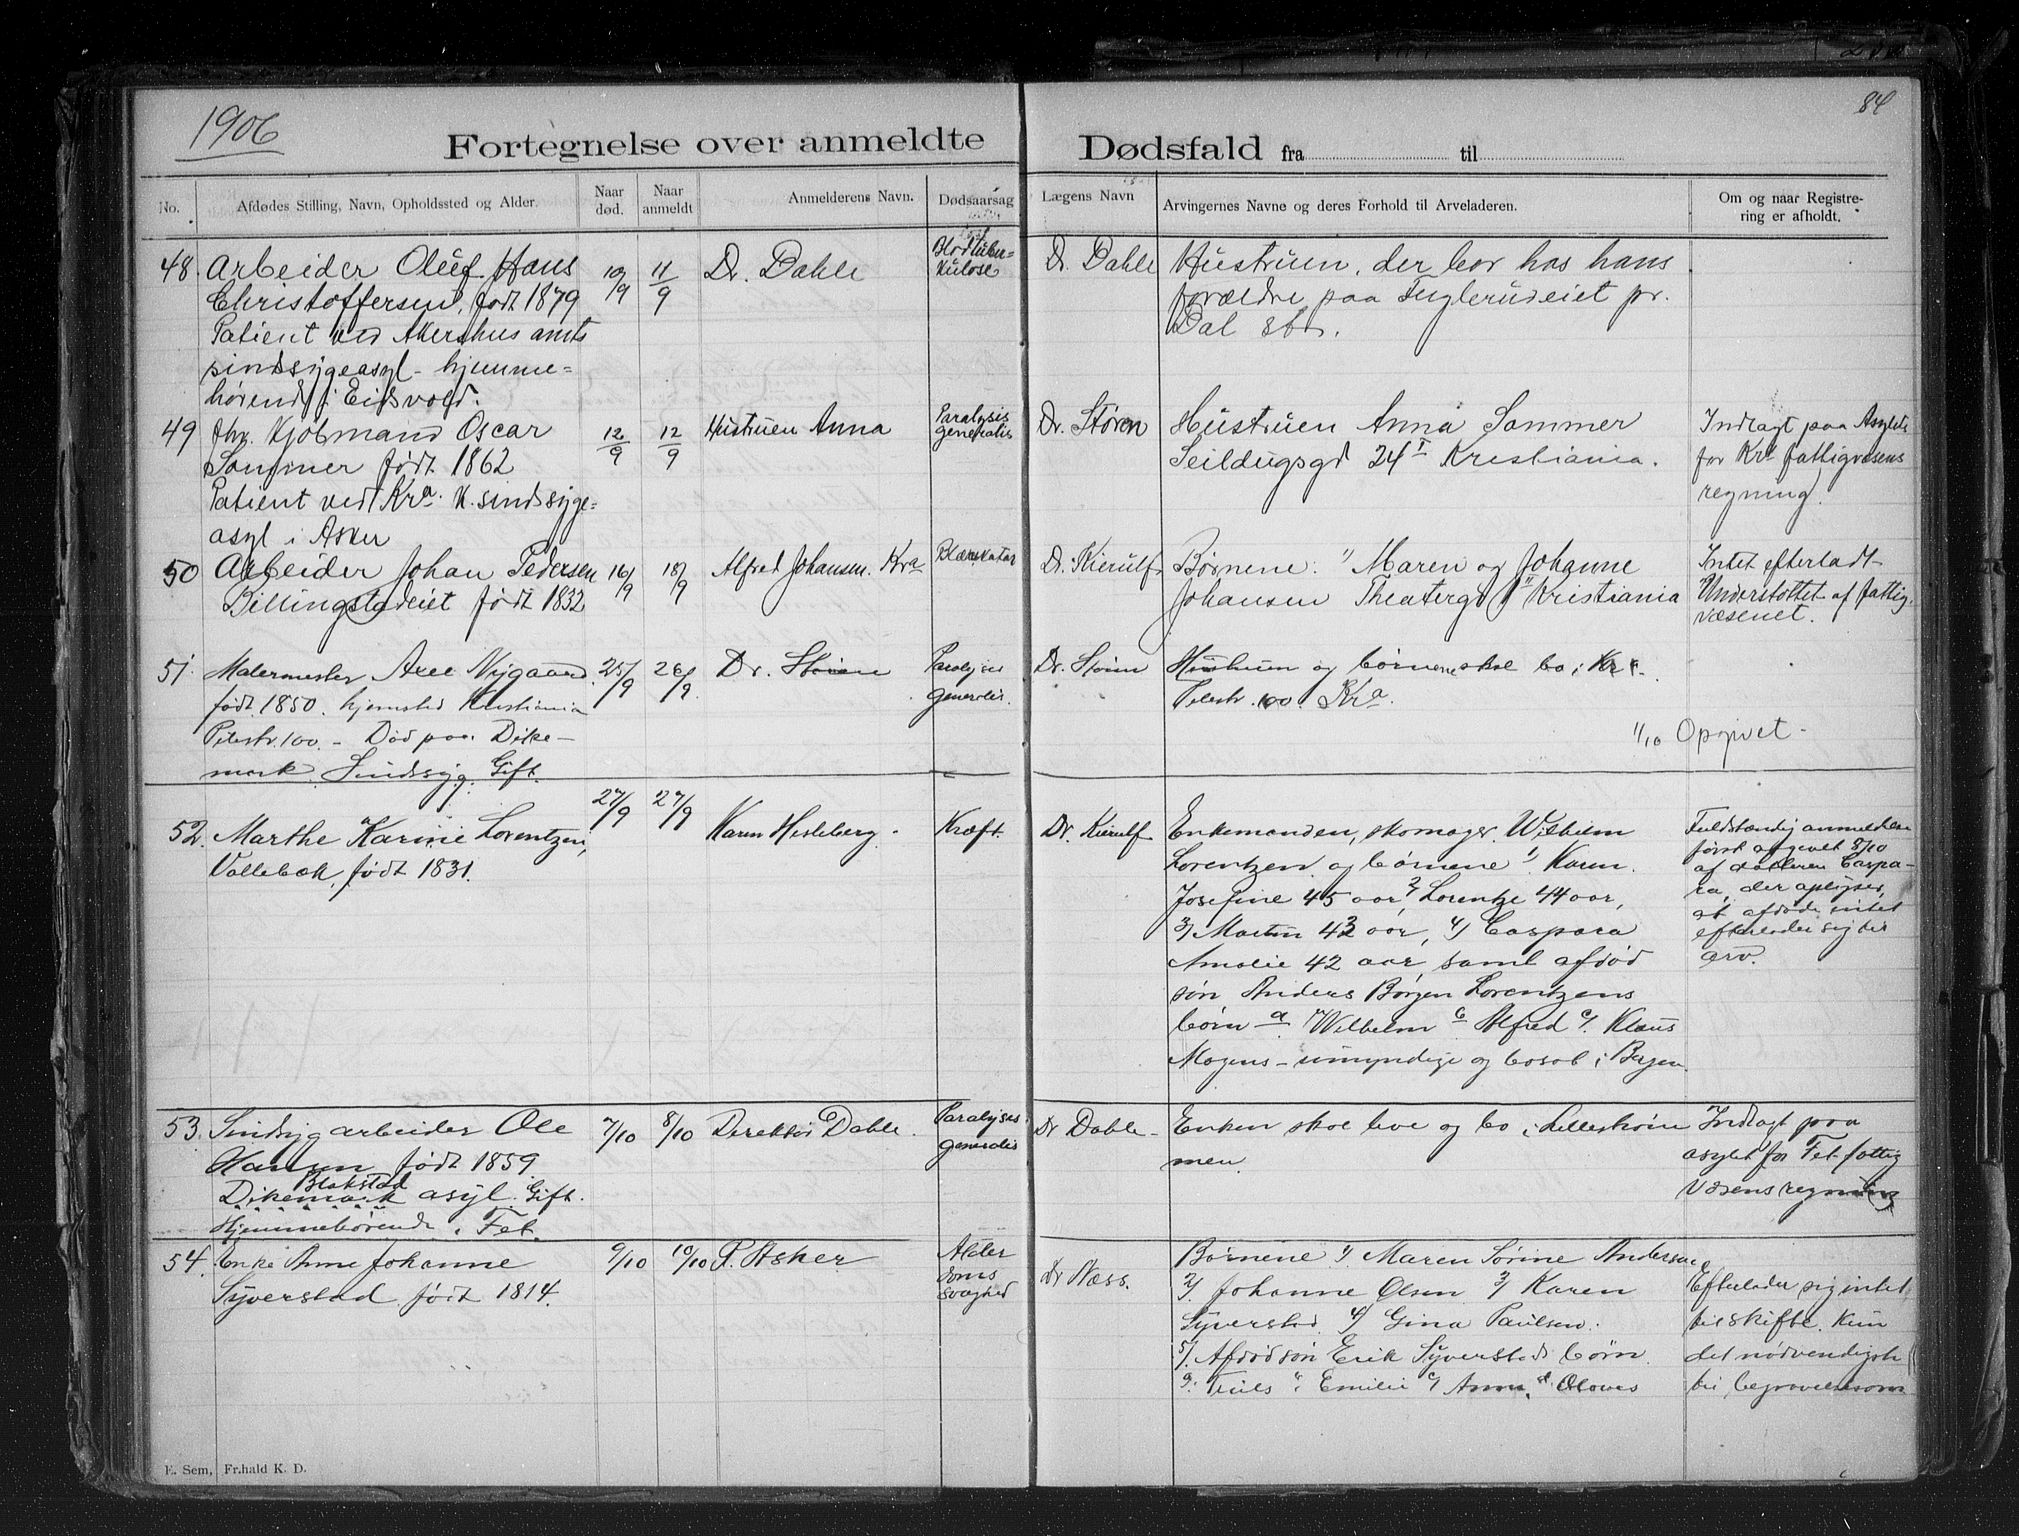 1906
84
Fortegnelse over anmeldte Dødsfald fra til
No.
Afdødes Stilling, Navn, Opholdssted og Alder.
Naar død.
Naar anmeldt
Anmelderens Navn.
Dødsaarsag
Lægens Navn
Arvingernes Navne og deres Forhold til Arveladeren.
Om og naar Registre-
ring er afholdt.
48. Arbeider Oluf Hans
Christoffersen, født 1879
Patient ved Akershus amts
sindssygeasyl - hjemme=
hørende i Eidsvold.
10/9
11/9
Dr. Dahle
Blodtuber=
kulose
Dr. Dahle
Hustruen, der bor hos hans
forældre paa Tuglerudeiet pr.
Dal st.
49 fhv. Kjøbmand Oscar
Sommer født 1862
Patient ved Kra. K. sindssyge=
asyl i Asker
12/9
12/9
Hustruen Anna
Paralysis
generalis
Dr. Støren
Hustruen Anna Sommer
Seildugsgd 24 I Kristiania.
Indlagt paa Asylet
for Kra fattigvæsens
regning.
50 Arbeider Johan Pedersen
Billingstadeiet født 1832
16/9
18/9
Alfred Johansen. Kra
Blærekatar
Dr. Kierulf
Børnene: 1/ Maren og Johanne
Johansen Theatergd 1 Kristiania
Intet efterladt -
Understøttet af fattig.
væsenet.
51. Malermester Axel Nygaard
født 1850. hjemsted Kristiania
Pilestr. 100. - Død paa Dike-
mark. Sindssyg. Gift.
25/9
26/9.
Dr. Støren
Paralyses
generalis.
Dr. Støren
Hustruen og børnene skal bo i Kra.
Pilestr. 100. Kra.
1/10 Opgivet -
52. Marthe Karine Lorentzen,
Vollebæk, født 1831.
27/9
27/9
Karen Hesleberg.
Kræft.
Dr. Kierulf
Enkemanden, skomager Wilhelm
Lorentzen og børnene 1/ Karen
Josefine 45 aar, 2/ Lorentze 44 aar,
3/ Martin 43 aar, 4/ Caspara
Amalie 42 aar samt afdød
søn Anders Børgen Lorentzens
børn a/ Wilhelm b/ Alfred c/ Klaus
Mogens - umyndige og bosat i Bergen.
Fuldstændig anmeldelse
først opgivet 8/10
af datteren Caspa-
ra, der oplyser,
at afdøde intet
efterlader sig til
arv.
53. Sindssyg arbeider Ole
Hansen født 1859
Blakstad
Dikemark asyl. Gift.
Hjemmehørende i Fet.
7/10
8/10
Direktør Dahle.
Paralyses
generalis
Dr Dahle -
Enken skal leve og bo i Lillestrøm
men.
Indlagt paa
asylet for Fet fattig
væsens regning
54. Enke Anne Johanne
Syverstad født 1814.
9/10
10/10
P. Asker
Alder
doms
svaghed
Dr Næss.
Børnene 1/ Maren Sørine Andersen
2/. Johanne Olsen 3/ Karen
Syverstad. 4/ Gina Paulsen.
5/. Afdød søn Erik Syverstads børn
a. b. Emilie c/ Anna, d. Olaves
Efterlader sig intet
til skifte. Kun
det nødvendigste
til begravelsesom
E. Sem, Fr.hald K. D.